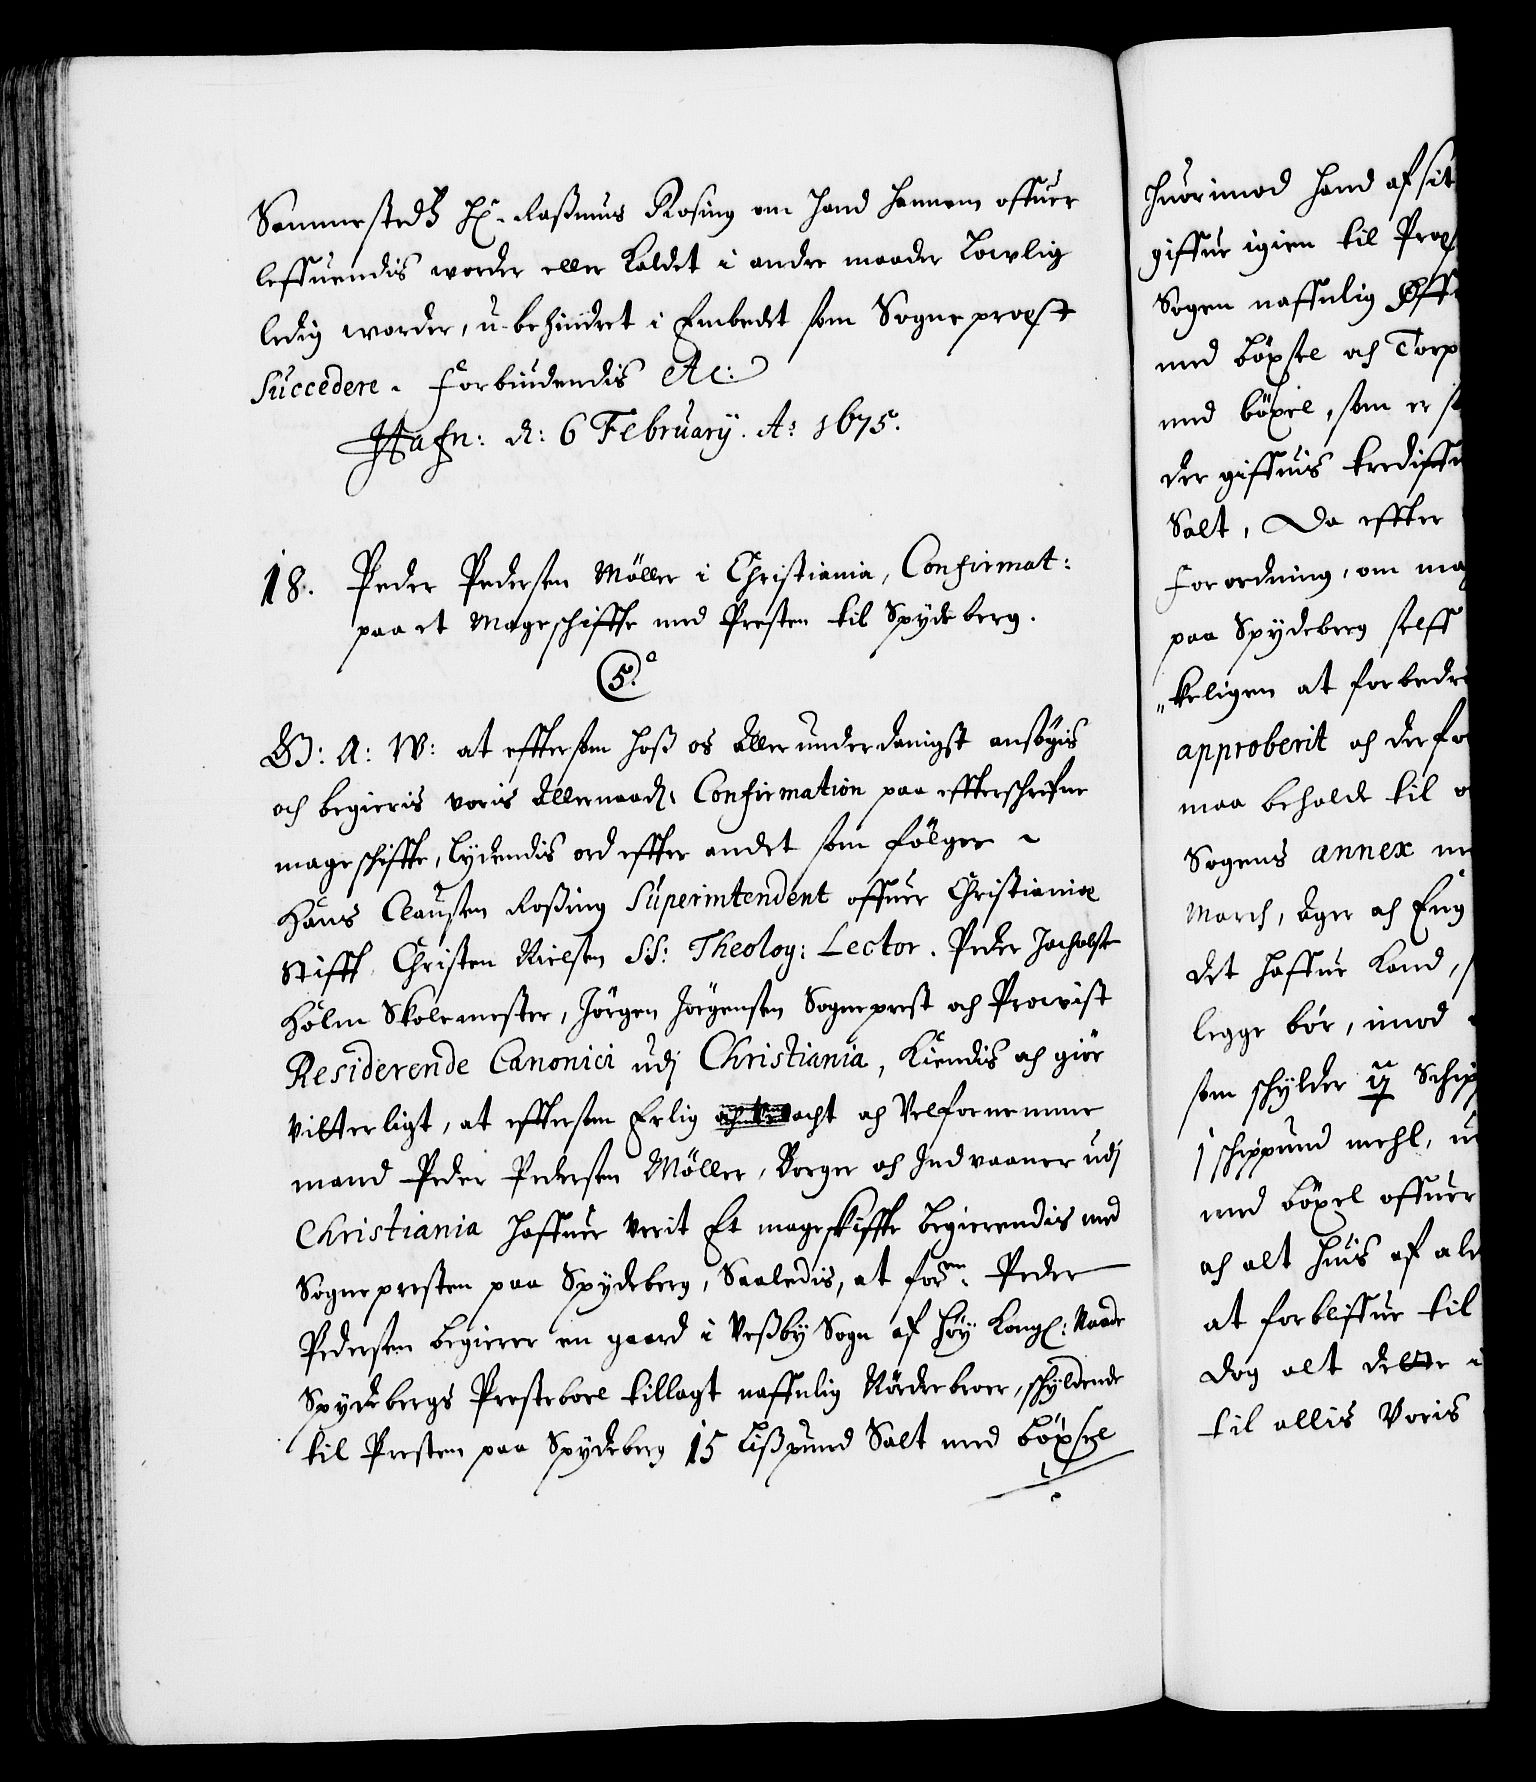 Sammesteds Hr. Rasmus Rosing om hand hannem offuer
leffuendis worder eller Kaldet i andre maader Lowlig
ledig worder, u-behindret i Embedet som Sogneprest
Succedere. Forbiudendis Etc:
Hafn: d: 6 February. Ao 1675.
18. Peder Pedersen Möller i Christiania, Confirmat:
paa et Mageschiffte med Presten til Spydeberg.
5.
G: A: W: at efftersom hoss os Allerunderdanigst ansögis
och begieris voris Allernaad: Confirmation paa effterschrefne
mageschiffte, lydendis ord effter andet som fölger
Hans Clausen Rossing Superintendent offuer Christianiæ
Stifft, Christen Nielsen SS: Theolog: Lector. Peder
Holm Skolemester, Jörgen Jörgensen Sogneprest och Prowist
Residerende Canonici udj Christiania, Kiendis och giör
vitterligt, at efftersom Erlig acht och Velfornemme
mand Peder Pedersen Möller, Borger och Indvaaner udj
Christiania haffuer verit Et mageskiffte begierendis med
Sognepresten paa Spydeberg, Saaledis, at forne. Peder
Pedersen begierer en gaard i Vessby Sogn af Höy Kongl: Naade
Spydebergs Presteboel tillagt naffnlig Nörderbroer, schyldende
til Presten paa Spydeberg 15 Lisspund Salt med böxsel
huorimod hand af sit
giffue igien til
Sogen naffnlig
med böxsle och Torp
med böxel, som er
der giffuis
Salt, Da effter
Forordning, om
paa Spydeberg selff
keligen at forbedre
approberit och
maa beholde til
Sogens annex
March, Ager och Eng
det haffue Kand,
legge bör, imod
som schylder
1 schippund mehl,
med böxel offuer
och alt huis af
at forbliffue til
dog alt dette
til allis Voris